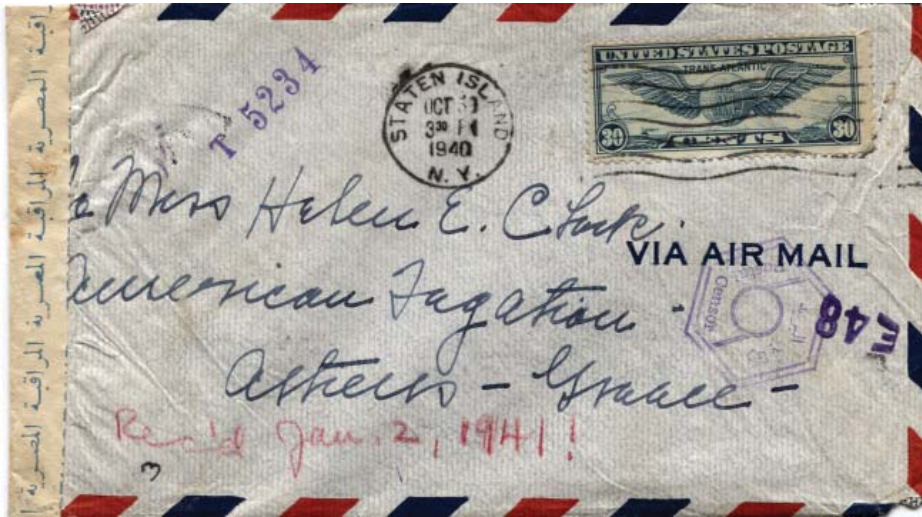 المراقبة المصرية المراقبة المصرية المراقبة المصرية
T 5234
STATEN ISLAND
OCT 30
3 30 PM
1940
N. Y.
UNITED STATES POSTAGE
TRANS-ATLANTIC
30 CENTS 30
Miss Helen E. Clark.
VIA AIR MAIL
American Legation -
Censor
E48
Athens - Greece -
Rec'd Jan. 2, 1941!
3